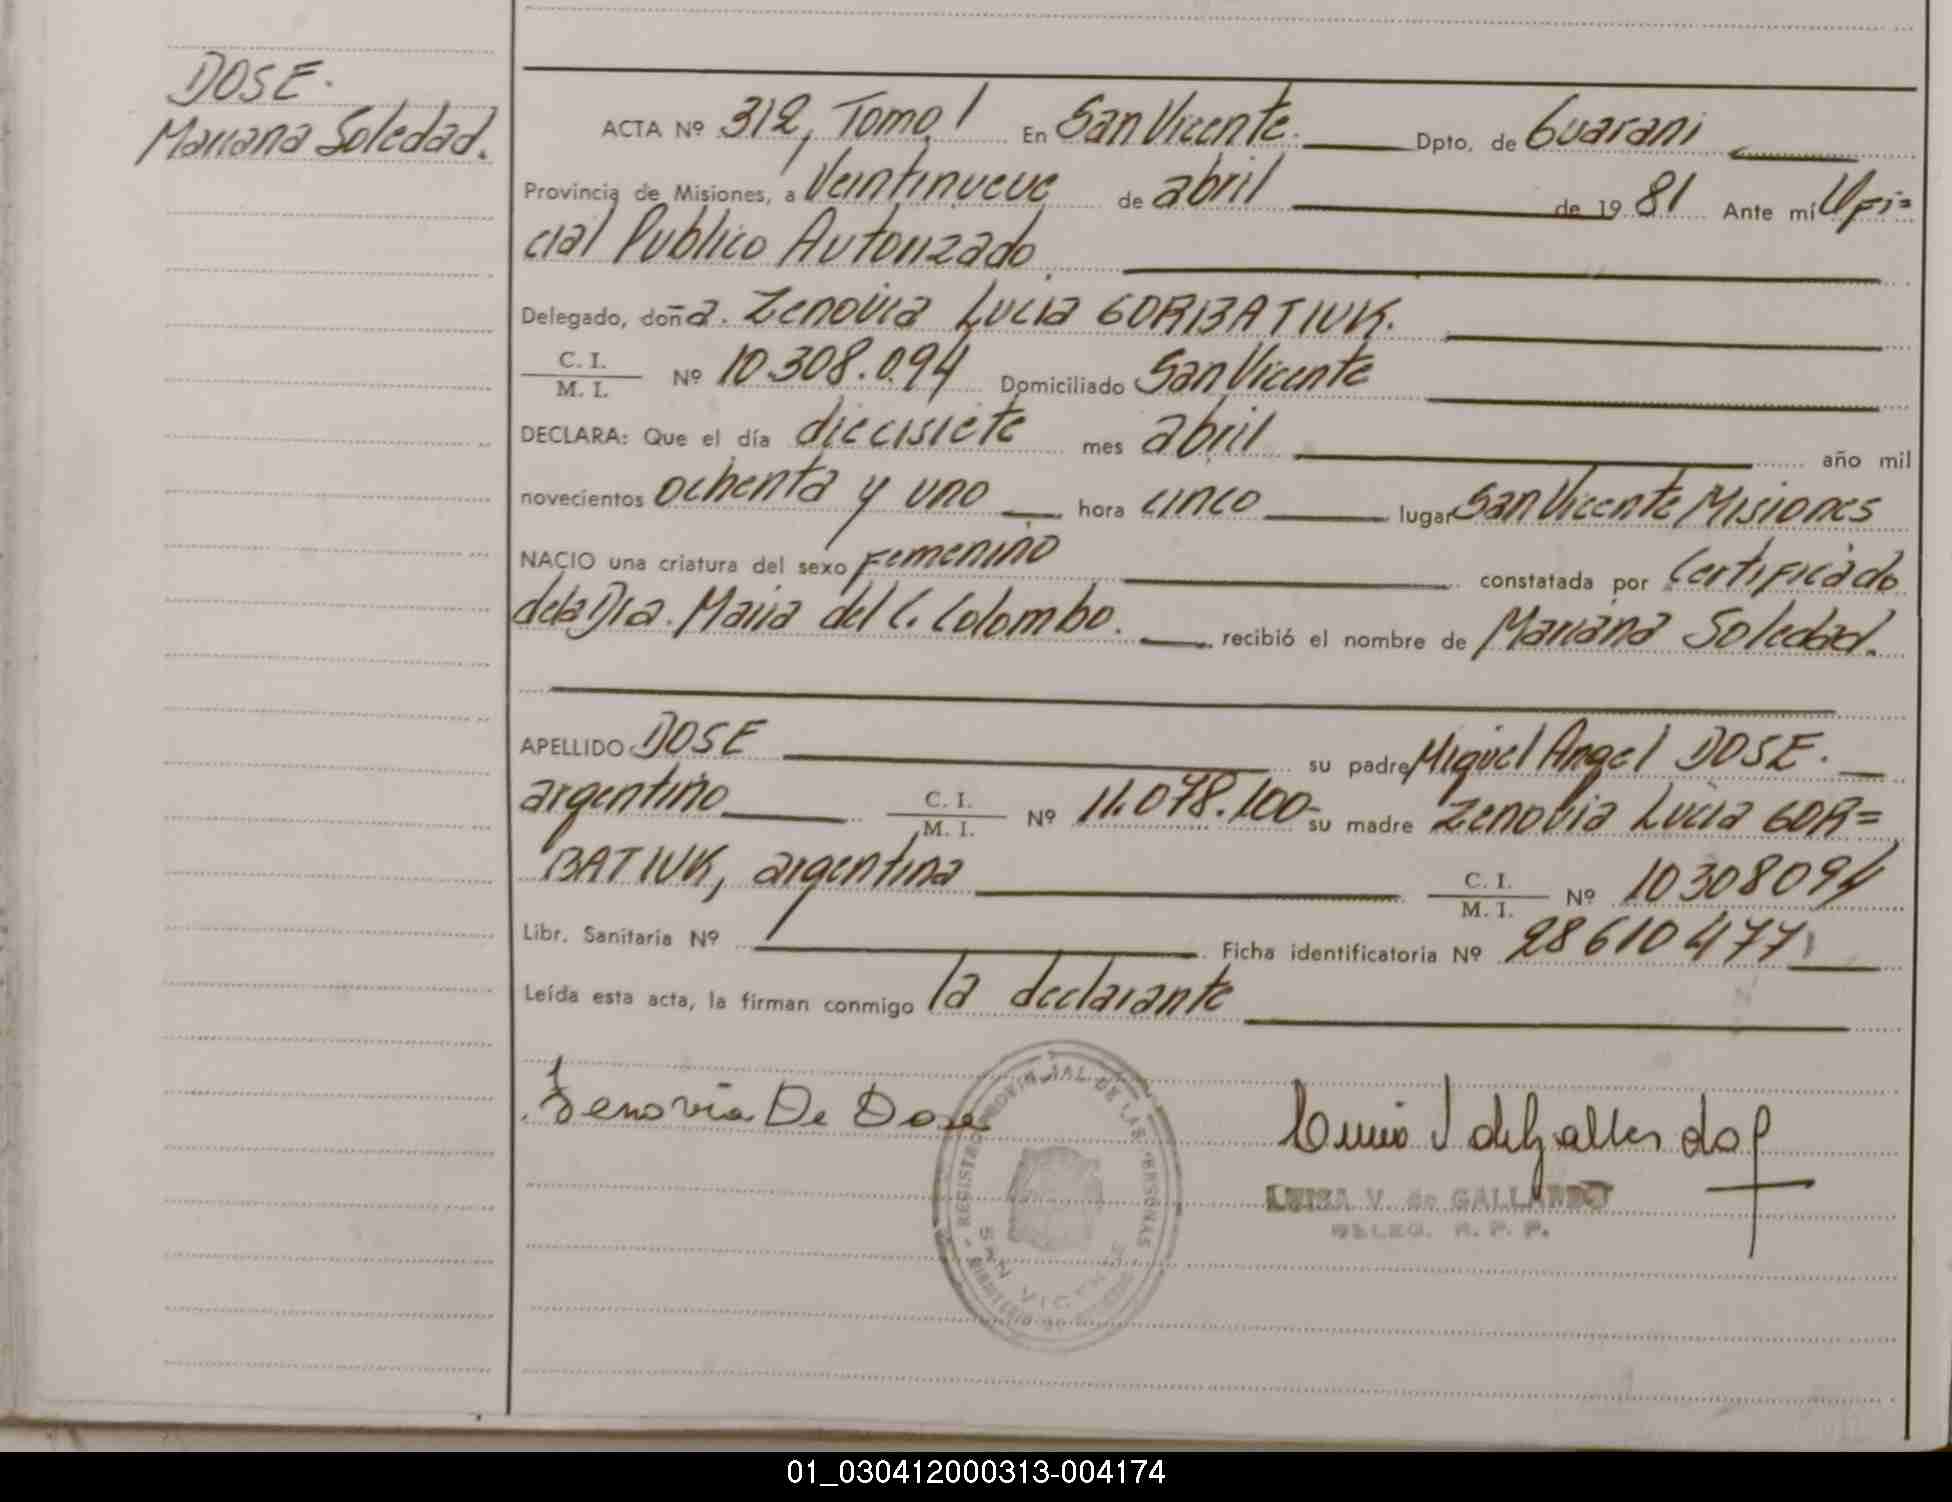 DOSE.
Mariana Soledad.
ACTA Nº 312, Tomo I En San Vicente. Dpto. de Guarani
Provincia de Misiones, a Veintinueve de abril de 1981 Ante mí Ofi=
cial Publico Autorizado.
Delegado, doña. Zenovia Lucia GORBATIUK.
C. I.
M. I. Nº 10.308.094 Domiciliado San Vicente
DECLARA: Que el día diecisiete mes abril año mil
novecientos ochenta y uno hora cinco lugar San Vicente Misiones
NACIO una criatura del sexo Femenino constatada por Certificado
de la Dra. Maria del C. Colombo. recibió el nombre de Mariana Soledad.
APELLIDO DOSE su padre Miguel Angel DOSE.
argentino C. I. M. I. Nº 11.078.100- su madre Zenovia Lucia GOR=
BATIUK, argentina C. I. M. I. Nº 10308094
Libr. Sanitaria Nº Ficha identificatoria Nº 28610477
Leída esta acta, la firman conmigo la declarante
Zenovia De Dose
REGISTRO PROVINCIAL DE LAS PERSONAS
SAN VICENTE
LUISA V. de GALLARDO
DELEG. R. P. P.
01_030412000313-004174